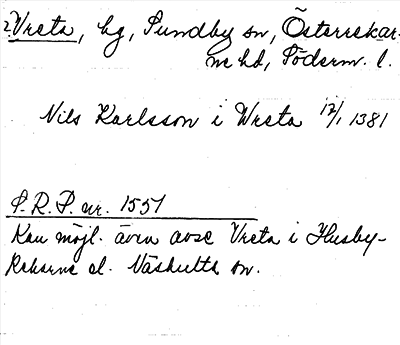 2. Vreta, by, Sundby sn, Österrekar-
ne hd, Söderm. l.
Nils Karlsson i Wreta 12/1 1381
S. R. P. nr. 1551
Kan möjl. även avse Vreta i Husby-
Rekarne el. Näshulta sn.